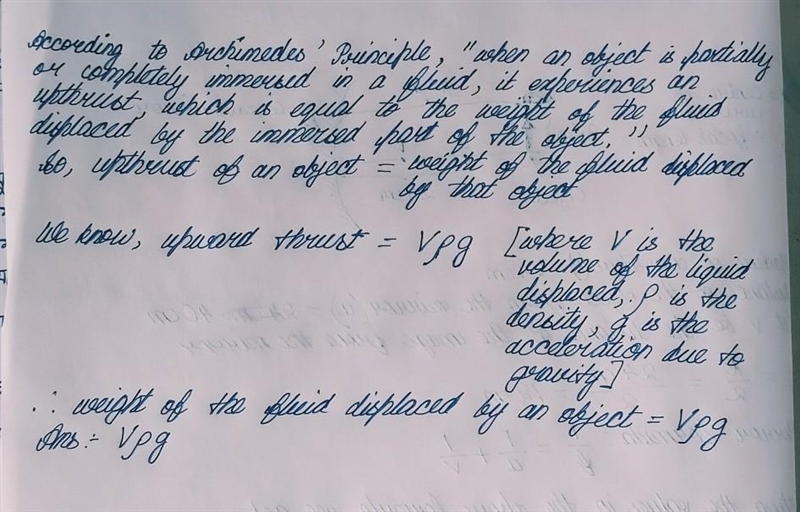 According to Archimedes' Principle, "when an object is partially
or completely immersed in a fluid, it experiences an
upthrust, which is equal to the weight of the fluid
displaced by the immersed part of the object."
So, upthrust of an object = weight of the fluid displaced
by that object
We know, upward thrust = Vρg [where V is the
volume of the liquid
displaced, ρ is the
density, g is the
acceleration due to
gravity]
∴ weight of the fluid displaced by an object = Vρg
Ans :- Vρg